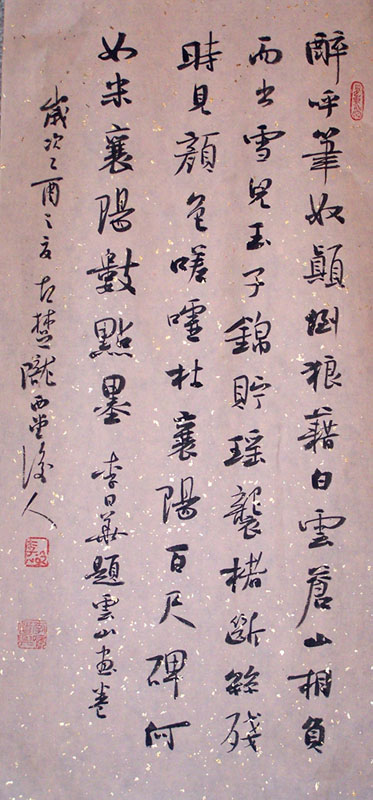 醉呼筆奴顛倒狼藉白雲蒼山相負
而出雪兒玉子錦貯瑶襲楮斷絲殘
時見顏色嗟嚄杜襄陽百尺碑何
如米襄陽數點墨 李日華題雲山畫卷
歲次乙酉之夏古楚隴西後人